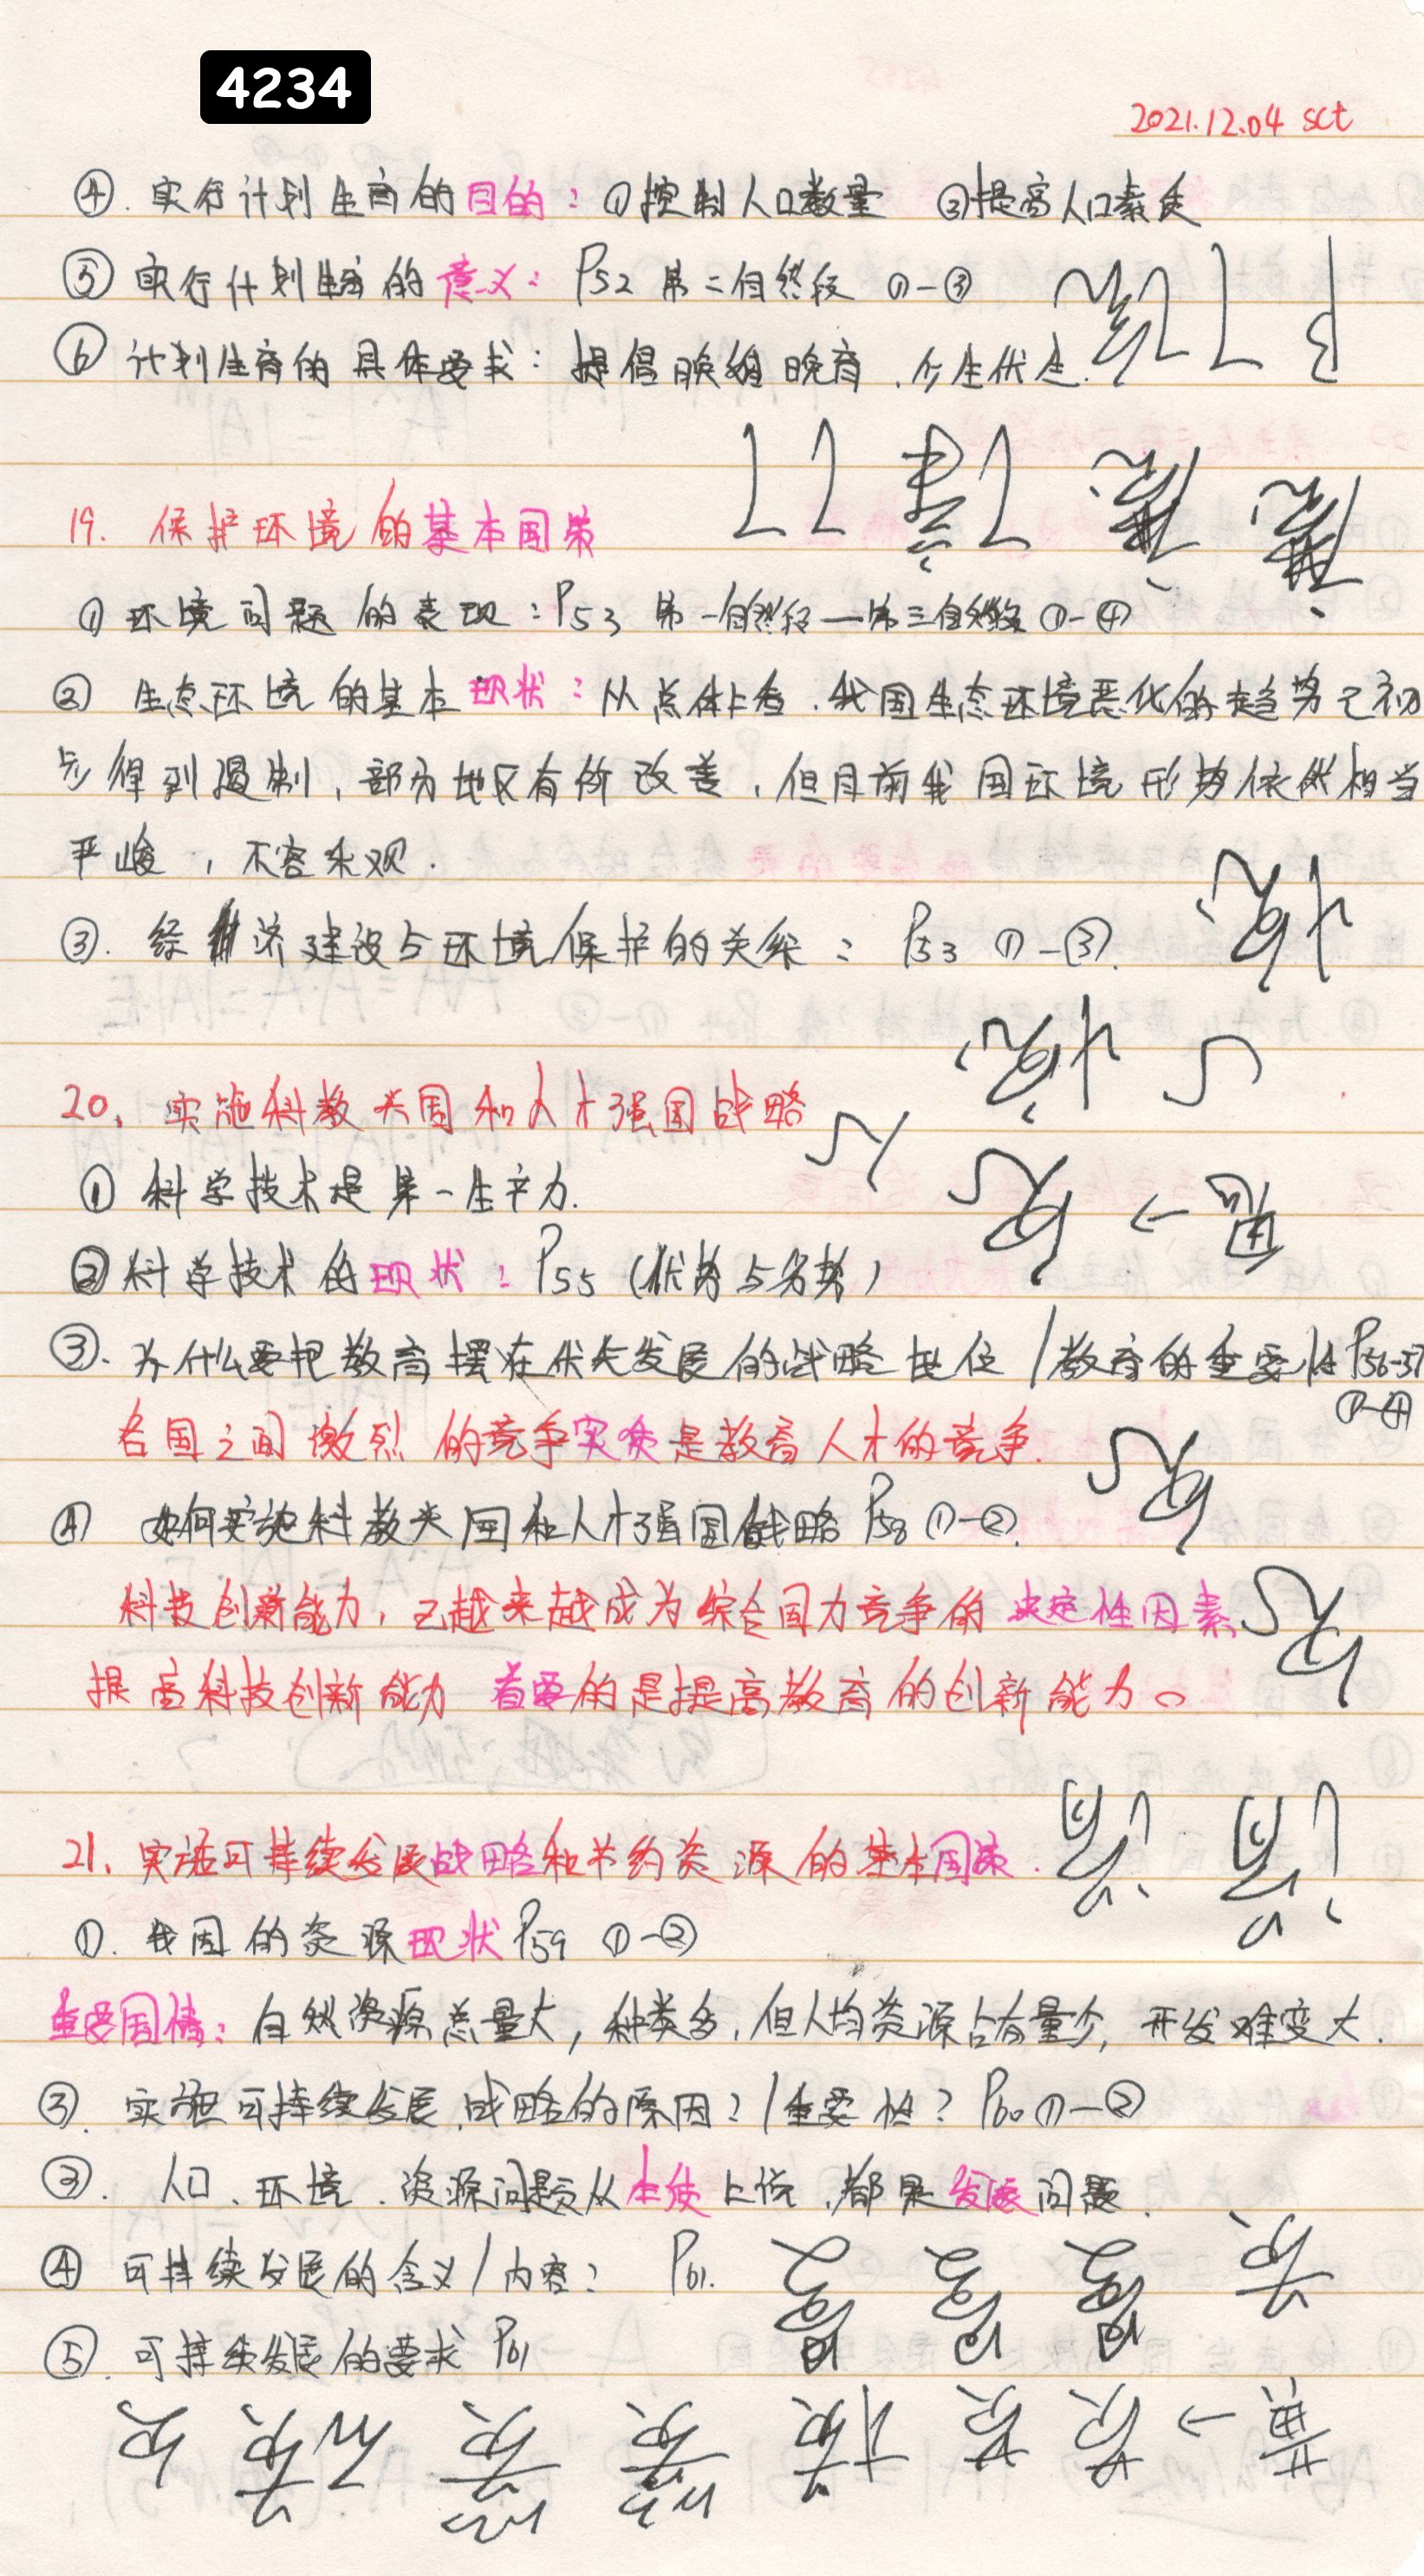 4234
2021.12.04 sct
④. 实行计划生育的目的：①控制人口数量 ②提高人口素质
⑤ 实行计划生育的意义：P52 第二自然段 ①-③
⑥ 计划生育的具体要求：提倡晚婚晚育，少生优生.
19. 保护环境的基本国策
① 环境问题的表现：P53 第一自然段—第三自然段 ①-④
② 生态环境的基本现状：从总体上看，我国生态环境恶化的趋势已初
步得到遏制，部分地区有所改善，但目前我国环境形势依然相当
严峻，不容乐观.
③. 经济建设与环境保护的关系：P53 ①-③.
20. 实施科教兴国和人才强国战略
① 科学技术是第一生产力.
② 科学技术的现状：P55（优势与劣势）
③. 为什么要把教育摆在优先发展的战略地位/教育的重要性P56-57
①-④
各国之间激烈的竞争实质是教育人才的竞争.
④ 如何实施科教兴国和人才强国战略 P58 ①-②.
科技创新能力，已越来越成为综合国力竞争的决定性因素
提高科技创新能力 首要的是提高教育的创新能力。
21. 实施可持续发展战略和节约资源的基本国策.
①. 我国的资源现状 P59 ①-②
重要国情：自然资源总量大，种类多，但人均资源占有量少，开发难度大.
②. 实施可持续发展战略的原因？/重要性？P60 ①-②
③. 人口、环境、资源问题从本质上说，都是发展问题.
④ 可持续发展的含义/内容：P61.
⑤. 可持续发展的要求 P61